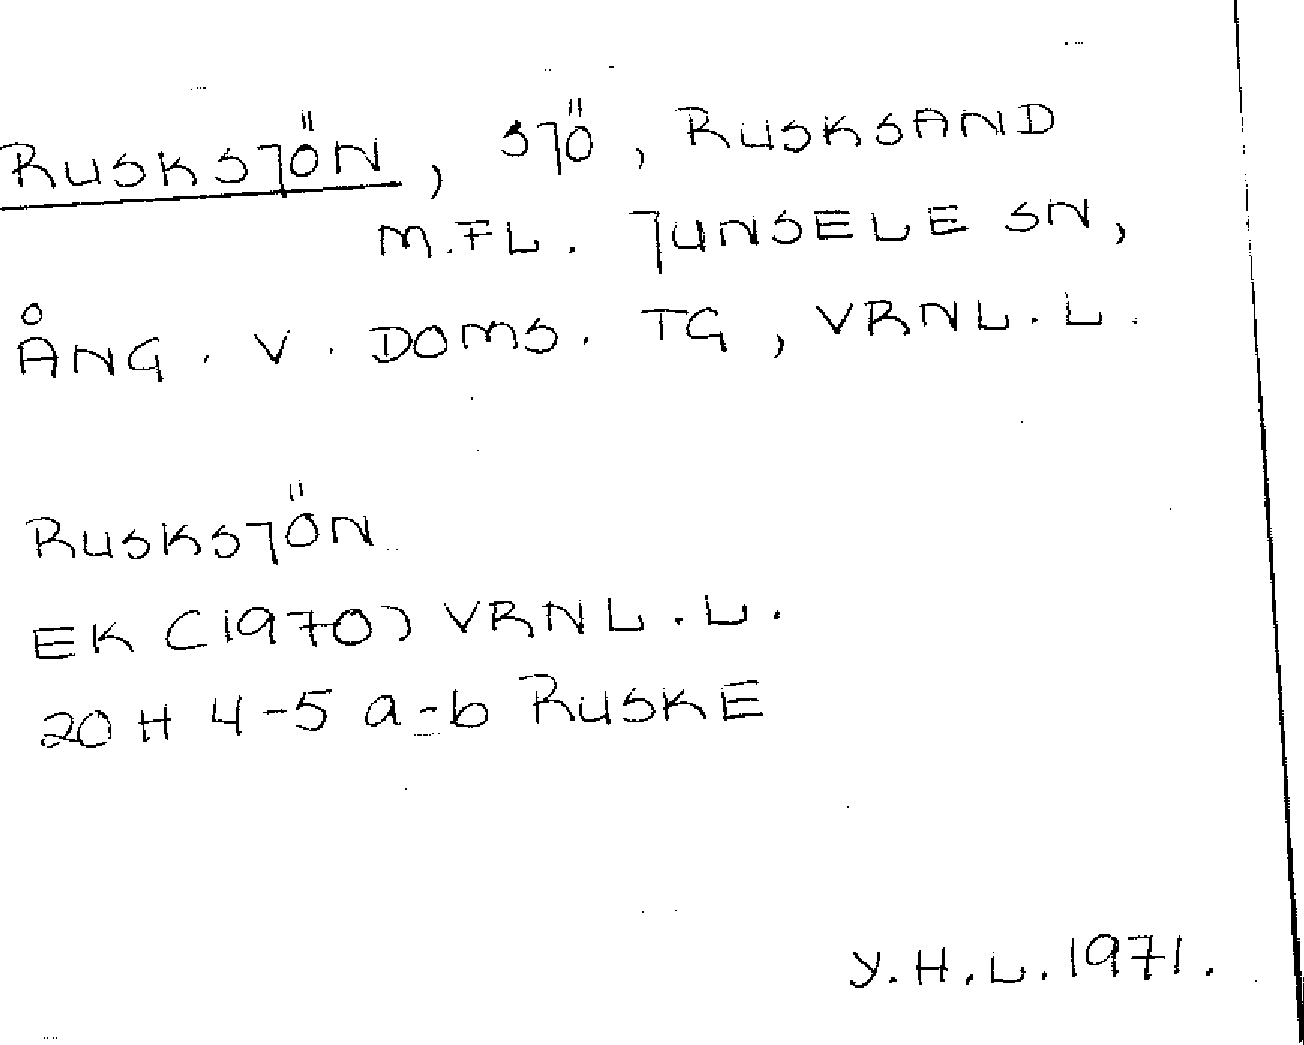 RUSKSJÖN, SJÖ, RUSKSAND
M.FL. JUNSELE SN,
ÅNG. V. DOMS. TG, VRNL.L.
RUSKSJÖN
EK (1970) VRNL.L.
20 H 4-5 a-b RUSKE
Y.H.L. 1971.